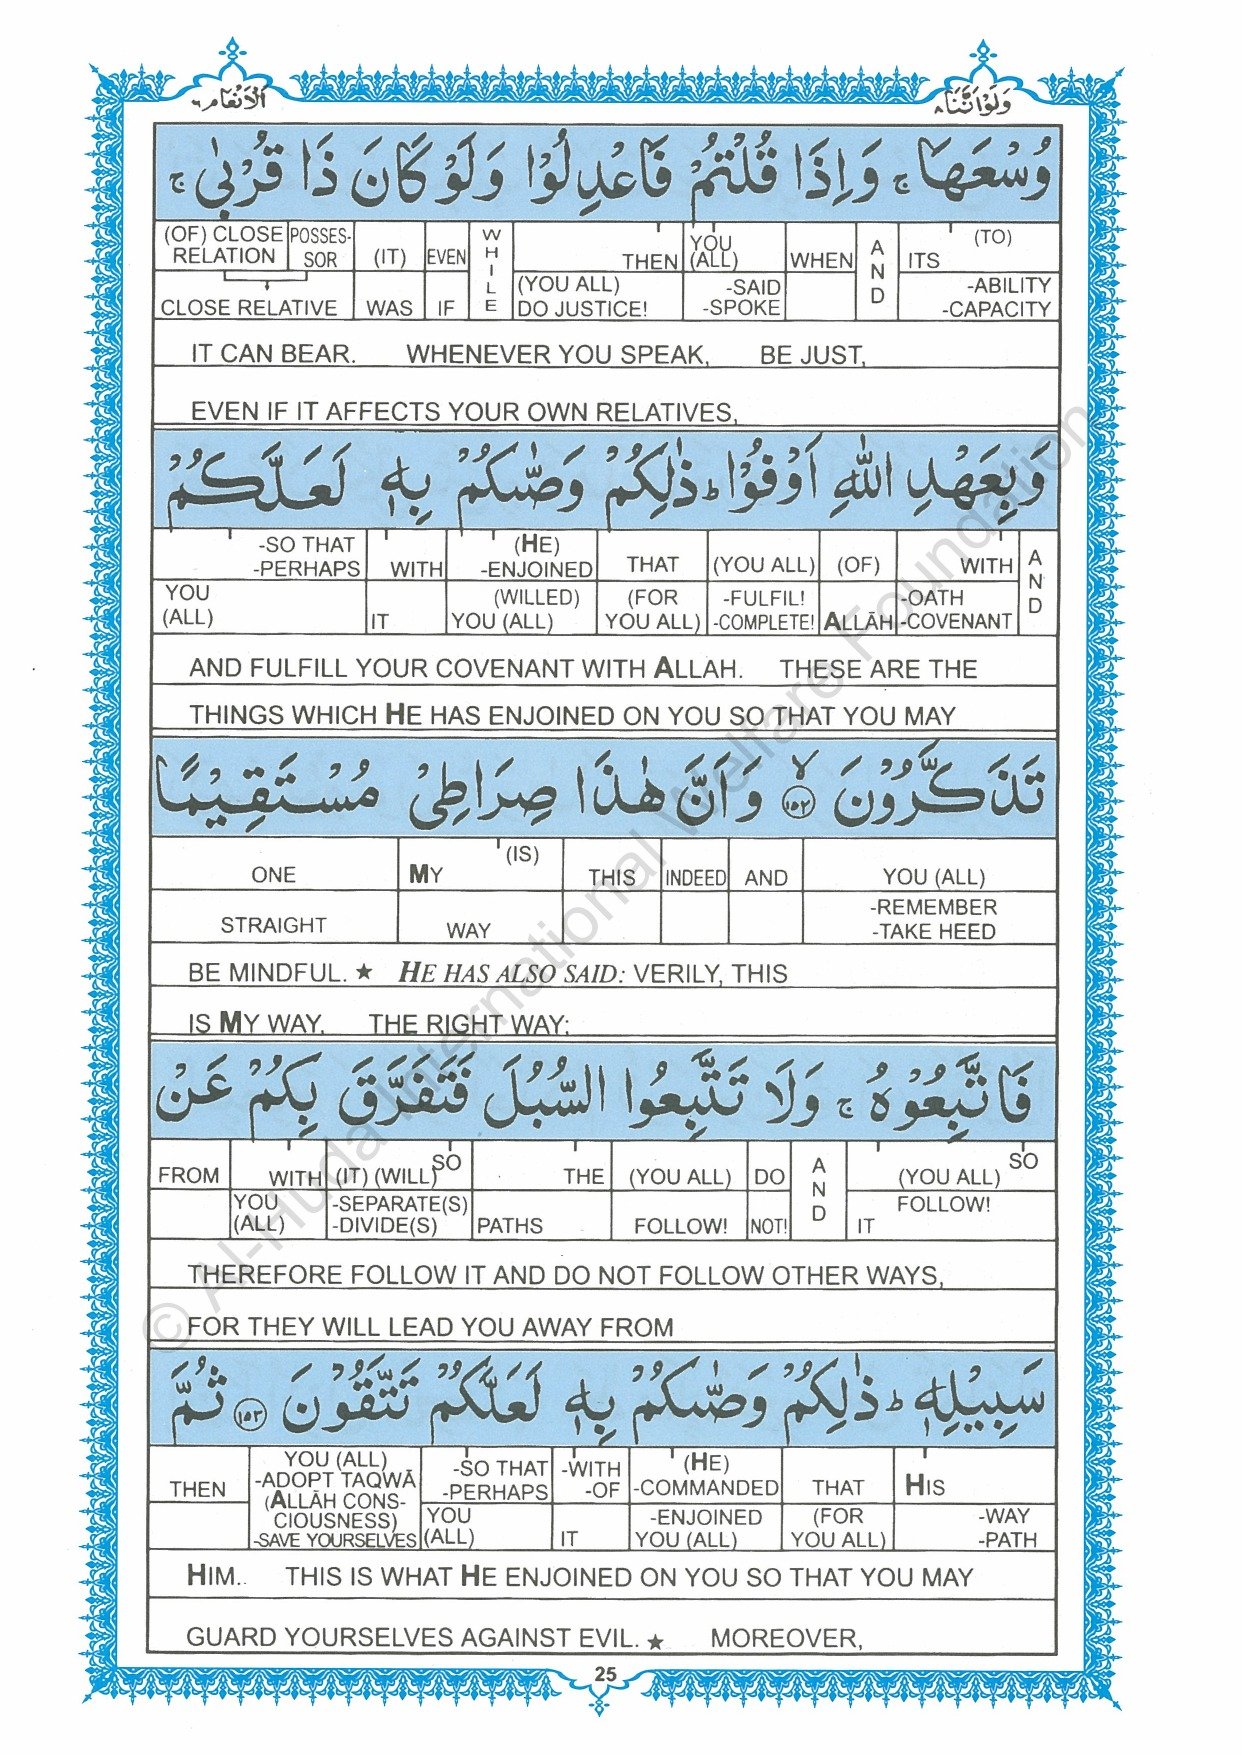 الانعام ٦
ولواننا ٨
وُسْعَهَا ۚ وَاِذَا قُلْتُمْ فَاعْدِلُوْا وَلَوْ كَانَ ذَا قُرْبٰى ۚ
(OF) CLOSE RELATION POSSES-SOR (IT) EVEN WHILE THEN YOU (ALL) WHEN AND ITS (TO)
CLOSE RELATIVE WAS IF (YOU ALL) DO JUSTICE! -SAID -SPOKE -ABILITY -CAPACITY
IT CAN BEAR. WHENEVER YOU SPEAK, BE JUST,
EVEN IF IT AFFECTS YOUR OWN RELATIVES,
وَبِعَهْدِ اللّٰهِ اَوْفُوْا ؕ ذٰلِكُمْ وَصّٰىكُمْ بِهٖ لَعَلَّكُمْ
-SO THAT -PERHAPS WITH (HE) -ENJOINED THAT (YOU ALL) (OF) WITH AND
YOU (ALL) IT (WILLED) YOU (ALL) (FOR YOU ALL) -FULFIL! -COMPLETE! ALLĀH -OATH -COVENANT
AND FULFILL YOUR COVENANT WITH ALLAH. THESE ARE THE
THINGS WHICH HE HAS ENJOINED ON YOU SO THAT YOU MAY
تَذَكَّرُوْنَ ۙ ١٥٢ وَاَنَّ هٰذَا صِرَاطِىْ مُسْتَقِيْمًا
ONE MY (IS) THIS INDEED AND YOU (ALL)
STRAIGHT WAY -REMEMBER -TAKE HEED
BE MINDFUL. ★ HE HAS ALSO SAID: VERILY, THIS
IS MY WAY, THE RIGHT WAY:
فَاتَّبِعُوْهُ ۚ وَلَا تَتَّبِعُوا السُّبُلَ فَتَفَرَّقَ بِكُمْ عَنْ
FROM WITH (IT) (WILL) SO THE (YOU ALL) DO AND (YOU ALL) SO
YOU (ALL) -SEPARATE(S) -DIVIDE(S) PATHS FOLLOW! NOT! IT FOLLOW!
THEREFORE FOLLOW IT AND DO NOT FOLLOW OTHER WAYS,
FOR THEY WILL LEAD YOU AWAY FROM
سَبِيْلِهٖ ؕ ذٰلِكُمْ وَصّٰىكُمْ بِهٖ لَعَلَّكُمْ تَتَّقُوْنَ ١٥٣ ثُمَّ
THEN YOU (ALL) -ADOPT TAQWĀ (ALLĀH CONS-CIOUSNESS) -SAVE YOURSELVES -SO THAT -PERHAPS -WITH -OF (HE) -COMMANDED THAT HIS
YOU (ALL) IT -ENJOINED YOU (ALL) (FOR YOU ALL) -WAY -PATH
HIM. THIS IS WHAT HE ENJOINED ON YOU SO THAT YOU MAY
GUARD YOURSELVES AGAINST EVIL. ★ MOREOVER,
25
© Al-Huda International Welfare Foundation